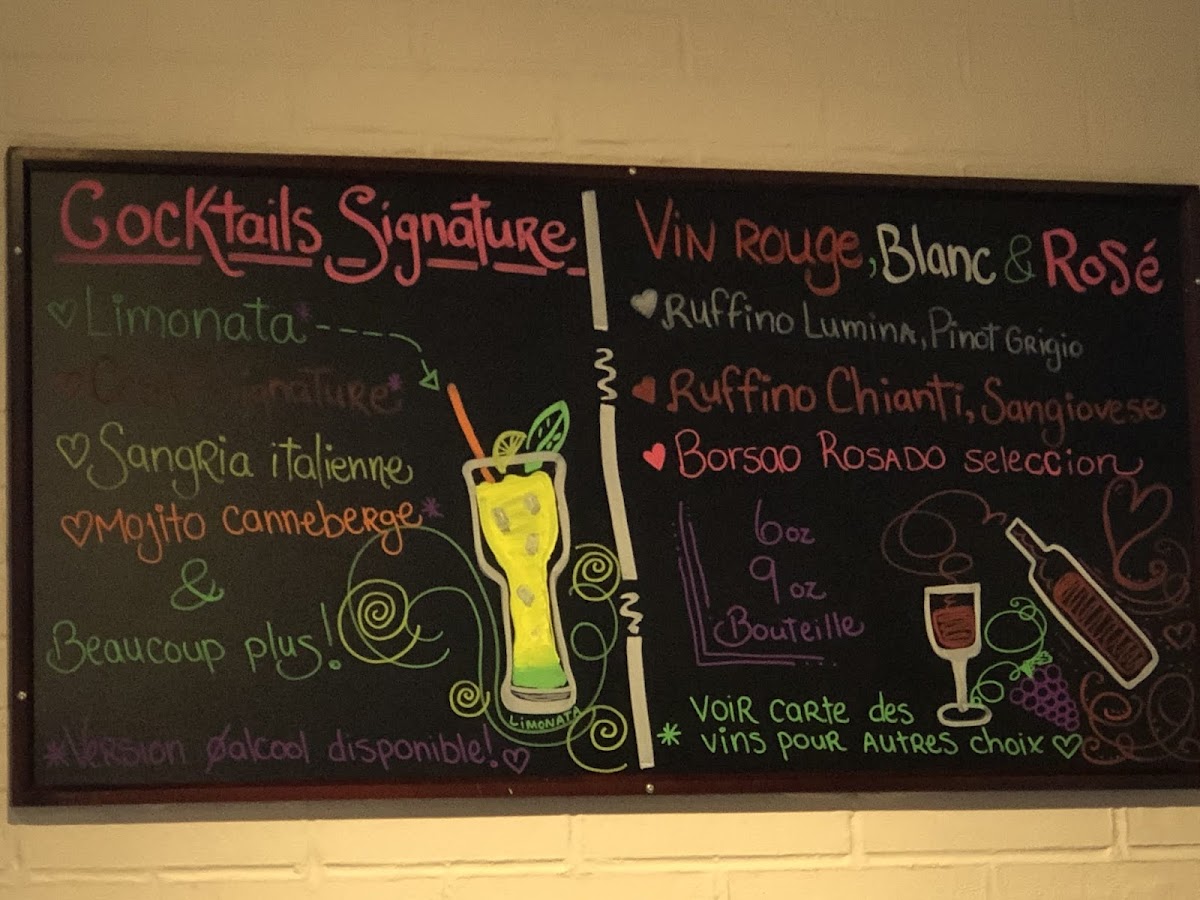 Cocktails Signature
Limonata*
Signature*
Sangria italienne
Mojito canneberge*
&
Beaucoup plus!
*Version Øalcool disponible!
LIMONATA
Vin Rouge, Blanc & Rosé
Ruffino Lumina, Pinot Grigio
Ruffino Chianti, Sangiovese
Borsao Rosado seleccion
6oz
9oz
Bouteille
* Voir carte des
vins pour autres choix